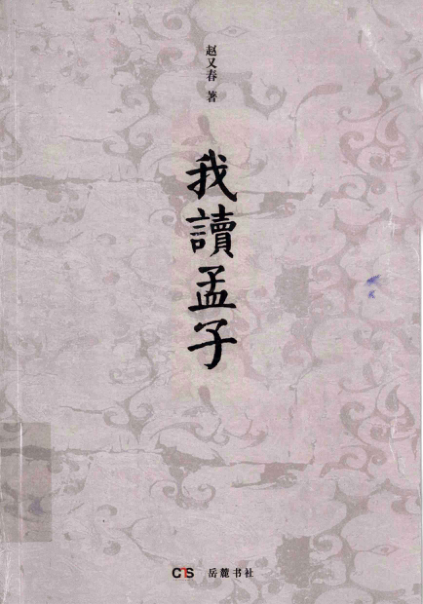 赵又春 著
我讀孟子
CTS 岳麓书社